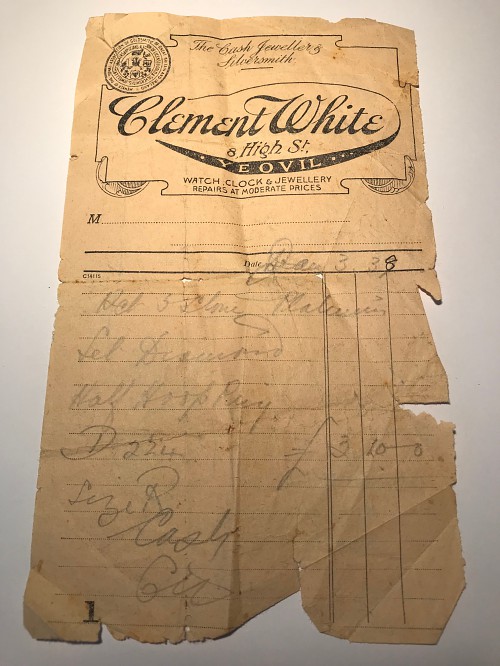 The Cash Jeweller &
Silversmith.
Clement White
8, High St,
YEOVIL
WATCH, CLOCK & JEWELLERY
REPAIRS AT MODERATE PRICES
M
Date 3 38
C14115
5 Stone Platinum
Set Diamond
Half Hoop Ring
£ 3 10 0
Size R
Cash
1